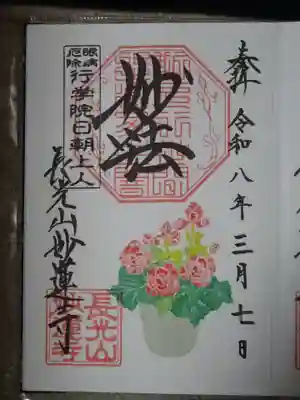 奉拝 令和八年三月七日
妙法
眼病
厄除
行学院日朝上人
長光山妙蓮寺
長光山
妙蓮寺